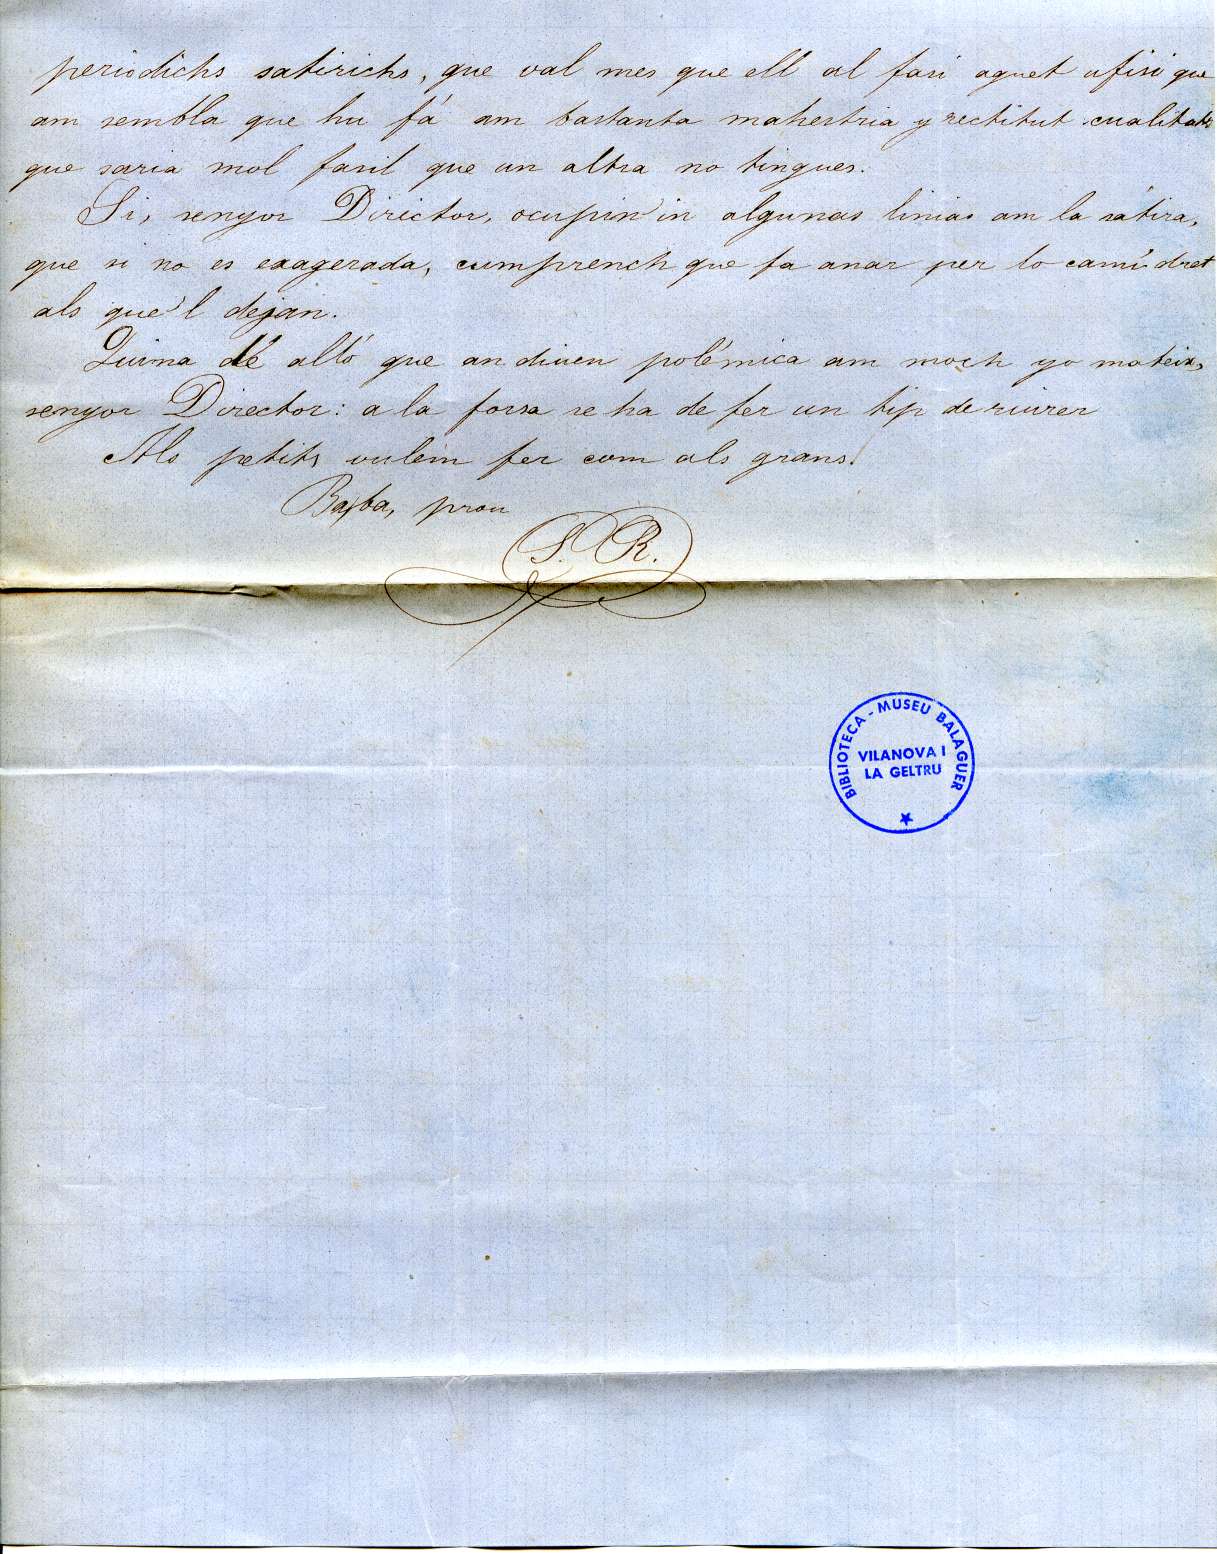 periodichs satirichs, que val mes que ell al fasi aquet ufisi que
am sembla que hu fá am bastanta mahestria y rectitut cualitats
que saria mol fasil que un altra no tingues.
Si, senyor Director, ocupin'in algunas linias am la sátira,
que si no es exagerada, cumprench que fa anar per lo camí dret
als que'l dejan.
Quina dé alló que an diuen polémica am moch yo mateix,
senyor Director: a la forsa se ha de fer un tip de riurer
Als petits vulem fer com als grans.
Basba, prou
S. R.
BIBLIOTECA - MUSEU BALAGUER
VILANOVA I
LA GELTRU